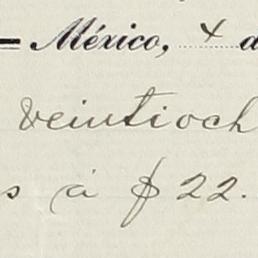 México, 4 d
veintioch
s á $ 22.